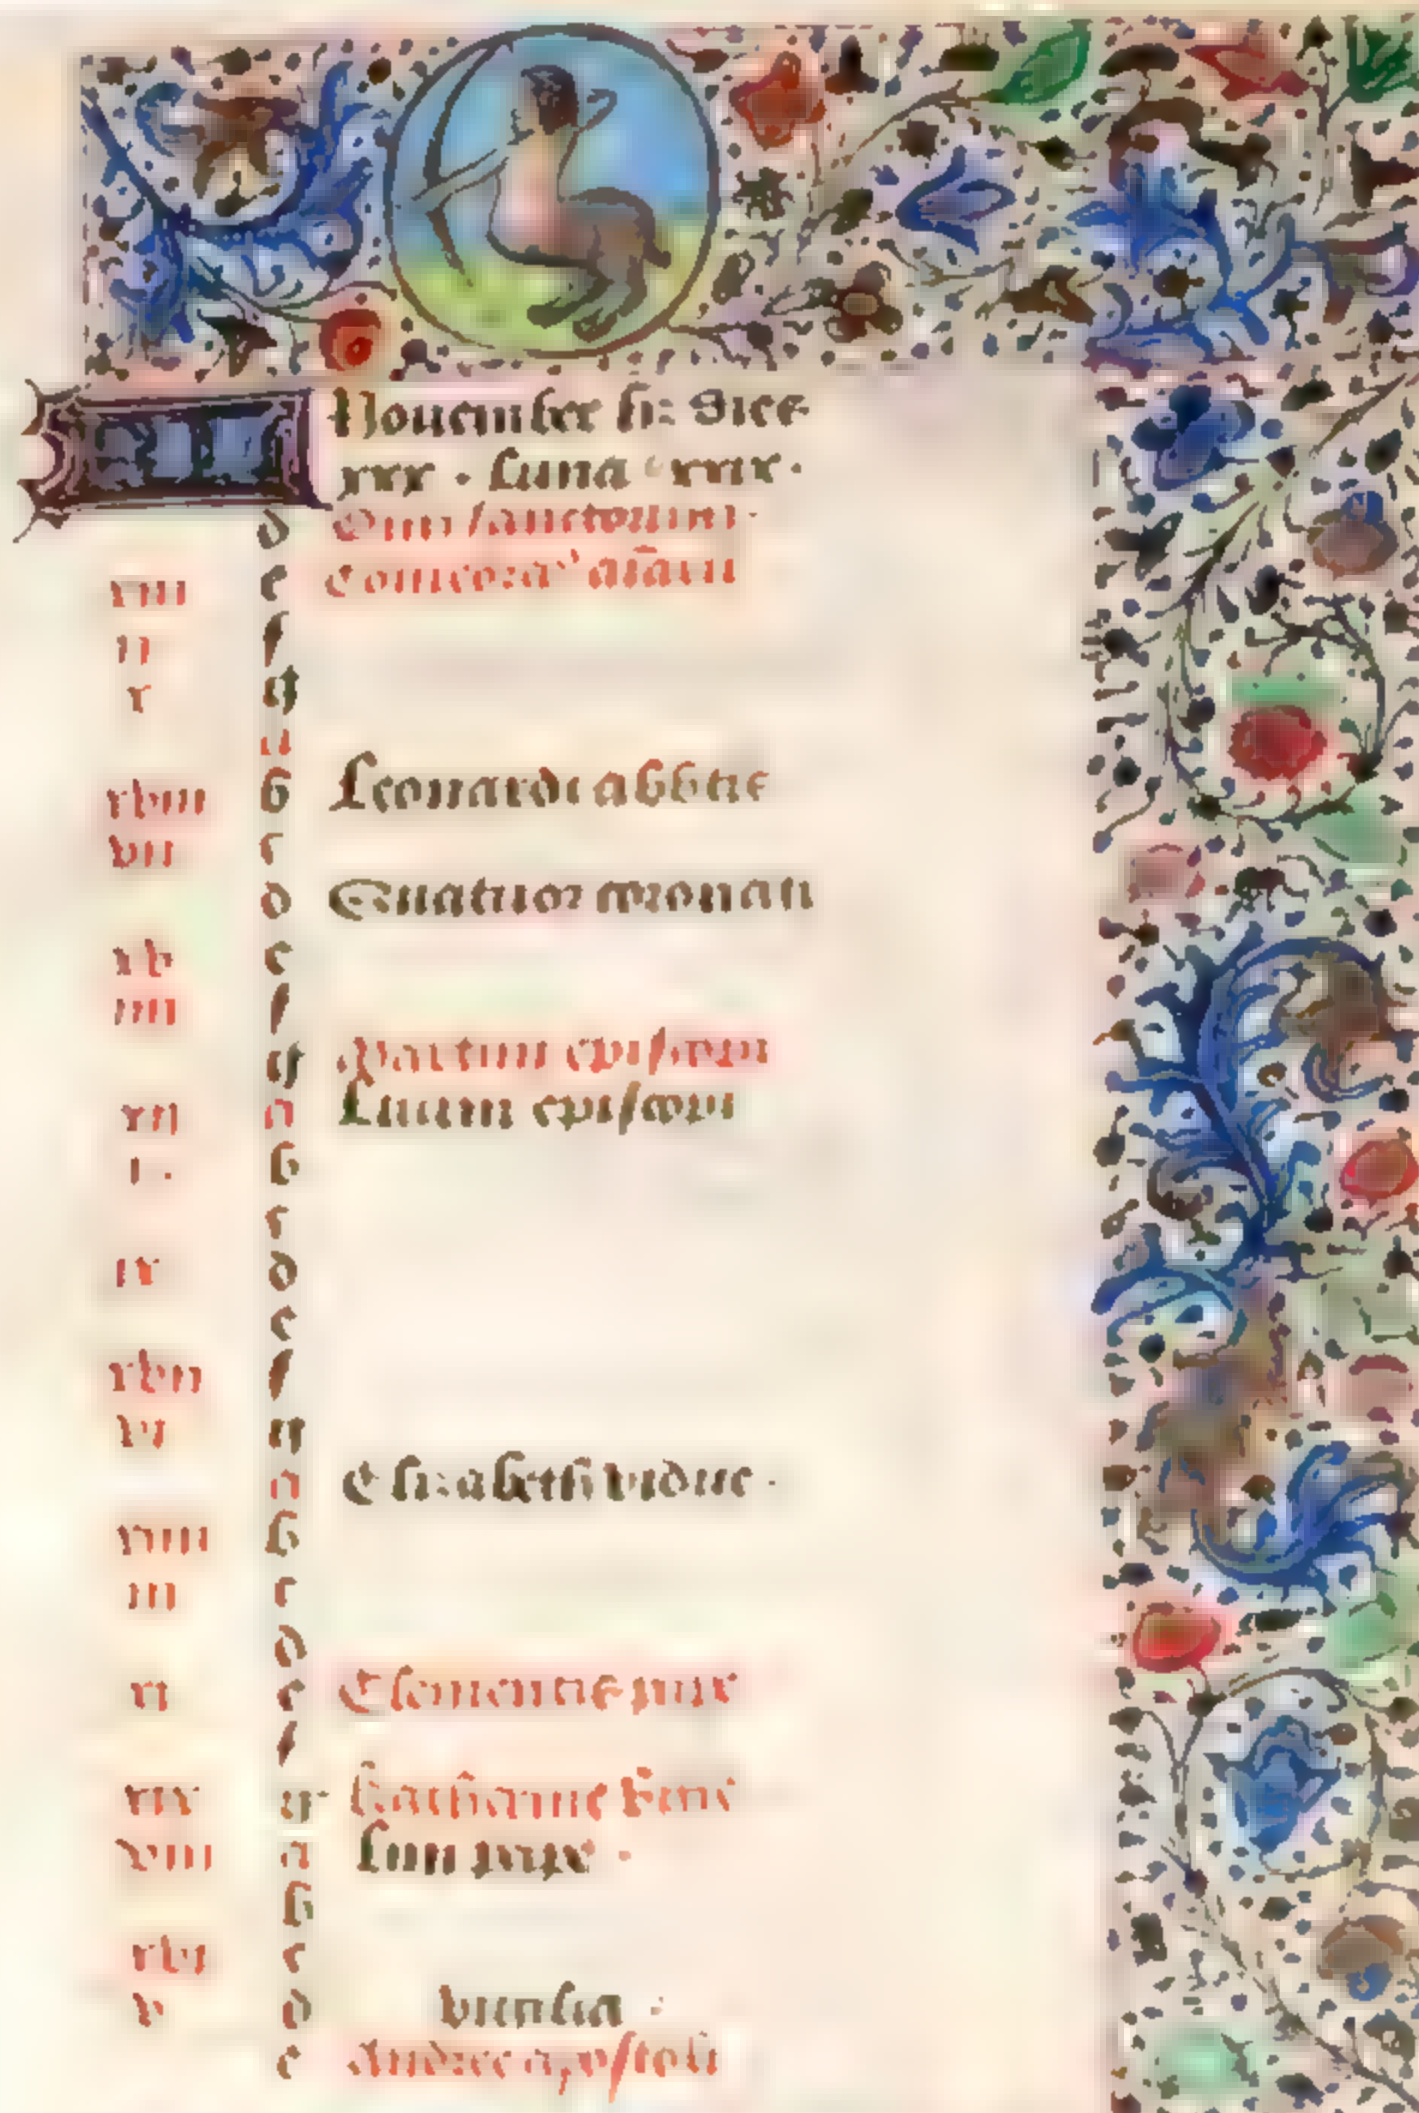 KL Nouember h: dies
xxx · luna xxix ·
d Omn sanctorum ·
xiii e Comemora' aiarū
ii f
x g
a
xviii b Leonardi abbtis
vii c
d Quatuor coronati
xv e
iiii f
g Martini episcopi
xii a Liuini episcopi
i · b
c
ix d
e
xvii f
vi g
a Elizabeth vidue ·
xiiii b
iii c
d
xi e Clementis pape
f
xix g Katherine virg
viii a Lini pape ·
b
xvi c
v d vigilia ·
e Andree apostoli